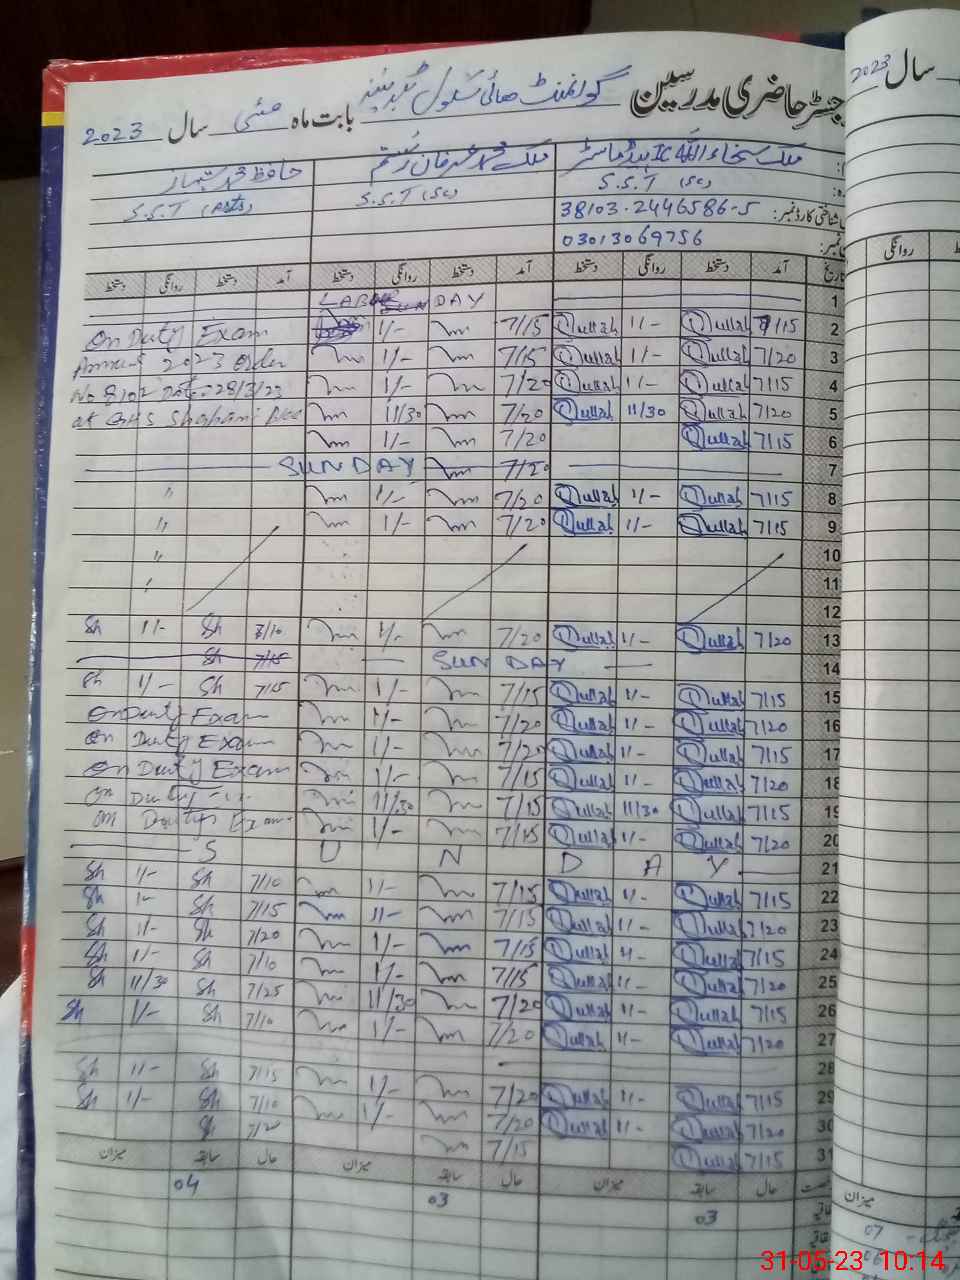 رجسٹر حاضری مدرسین گورنمنٹ ہائی سکول بابت ماہ مئی سال 2023
سال 2023
ملک سخاء اللہ IC ہیڈ ماسٹر ملک محمد عرفان حافظ محمد
S.S.T (Sc) S.S.T (SC) S.S.T (Arts)
شناختی کارڈ نمبر: 38103-2446586-5
03013069756
تاریخ آمد دستخط روانگی دستخط آمد دستخط روانگی دستخط آمد دستخط روانگی دستخط
1 LABOUR DAY
2 7/15 Qullah 1/- Qullah 7/15 1/- On Duty Exam
3 7/20 Qullah 1/- Qullah 7/15 1/- Annual 2023 Order
4 7/15 Qullah 1/- Qullah 7/20 1/- No 8102 Dat. 28/3/23
5 7/20 Qullah 11/30 Qullah 7/20 11/30 at GHS
6 7/15 Qullah 7/20 1/-
7 SUNDAY 7/20
8 7/15 Qullah 1/- Qullah 7/20 1/- "
9 7/15 Qullah 1/- Qullah 7/20 1/- "
10 "
11
12
13 7/20 Qullah 1/- Qullah 7/20 1/- 7/10 Sh 1/- Sh
14 SUN DAY 7/15 Sh
15 7/15 Qullah 1/- Qullah 7/15 1/- 7/15 Sh 1/- Sh
16 7/20 Qullah 1/- Qullah 7/20 1/- On Duty Exam
17 7/15 Qullah 1/- Qullah 7/20 1/- On Duty Exam
18 7/20 Qullah 1/- Qullah 7/15 1/- On Duty Exam
19 7/15 Qullah 11/30 Qullah 7/15 11/30 On Duty
20 7/20 Qullah 1/- Qullah 7/15 1/- On Duty Exam
21 S U N D A Y
22 7/15 Qullah 1/- Qullah 7/15 1/- 7/10 Sh 1/- Sh
23 7/20 Qullah 1/- Qullah 7/15 1/- 7/15 Sh 1- Sh
24 7/15 Qullah 1/- Qullah 7/15 1/- 7/20 Sh 1/- Sh
25 7/20 Qullah 1/- Qullah 7/15 1/- 7/10 Sh 1/- Sh
26 7/15 Qullah 1/- Qullah 7/20 11/30 7/25 Sh 11/30 Sh
27 7/20 Qullah 1/- Qullah 7/20 1/- 7/10 Sh 1/- Sh
28
29 7/15 Qullah 1/- Qullah 7/20 1/- 7/15 Sh 1/- Sh
30 7/20 Qullah 1/- Qullah 7/20 1/- 7/10 Sh 1/- Sh
31 7/15 Qullah 7/15 7/20 Sh
حال سابقہ میزان حال سابقہ میزان حال سابقہ میزان
03 03 04
میزان
07
06
31-05-23 10:14